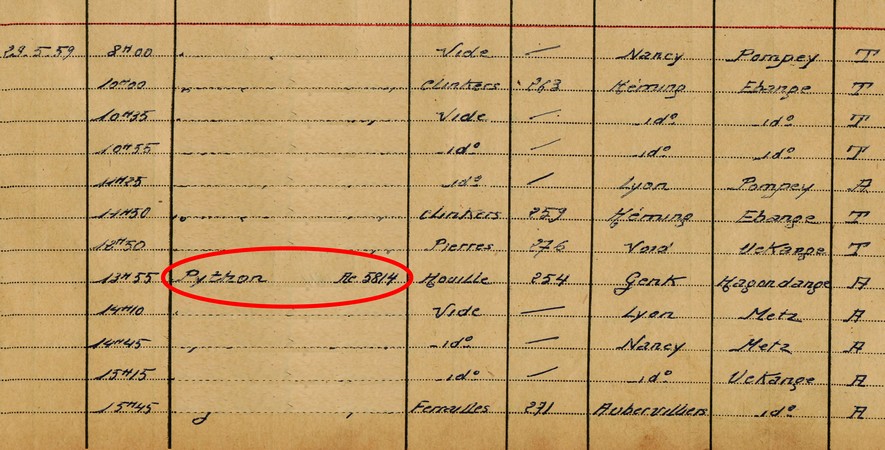 29.5.59 8H00 Vide — Nancy Pompey T
10H00 Clinkers 263 Héming Ebange T
10H35 Vide — _ido _ido T
10H55 _ido — _ido _ido T
11H25 _ido — Lyon Pompey A
11H50 Clinkers 259 Héming Ebange T
12H50 Pierres 276 Void Uckange T
13H55 Python 5814 Houille 254 Genk Hagondange A
14H10 Vide — Lyon Metz A
14H45 _ido — Nancy Metz A
15H15 _ido — _ido Uckange A
15H45 Ferrailles 271 Aubervilliers _ido A